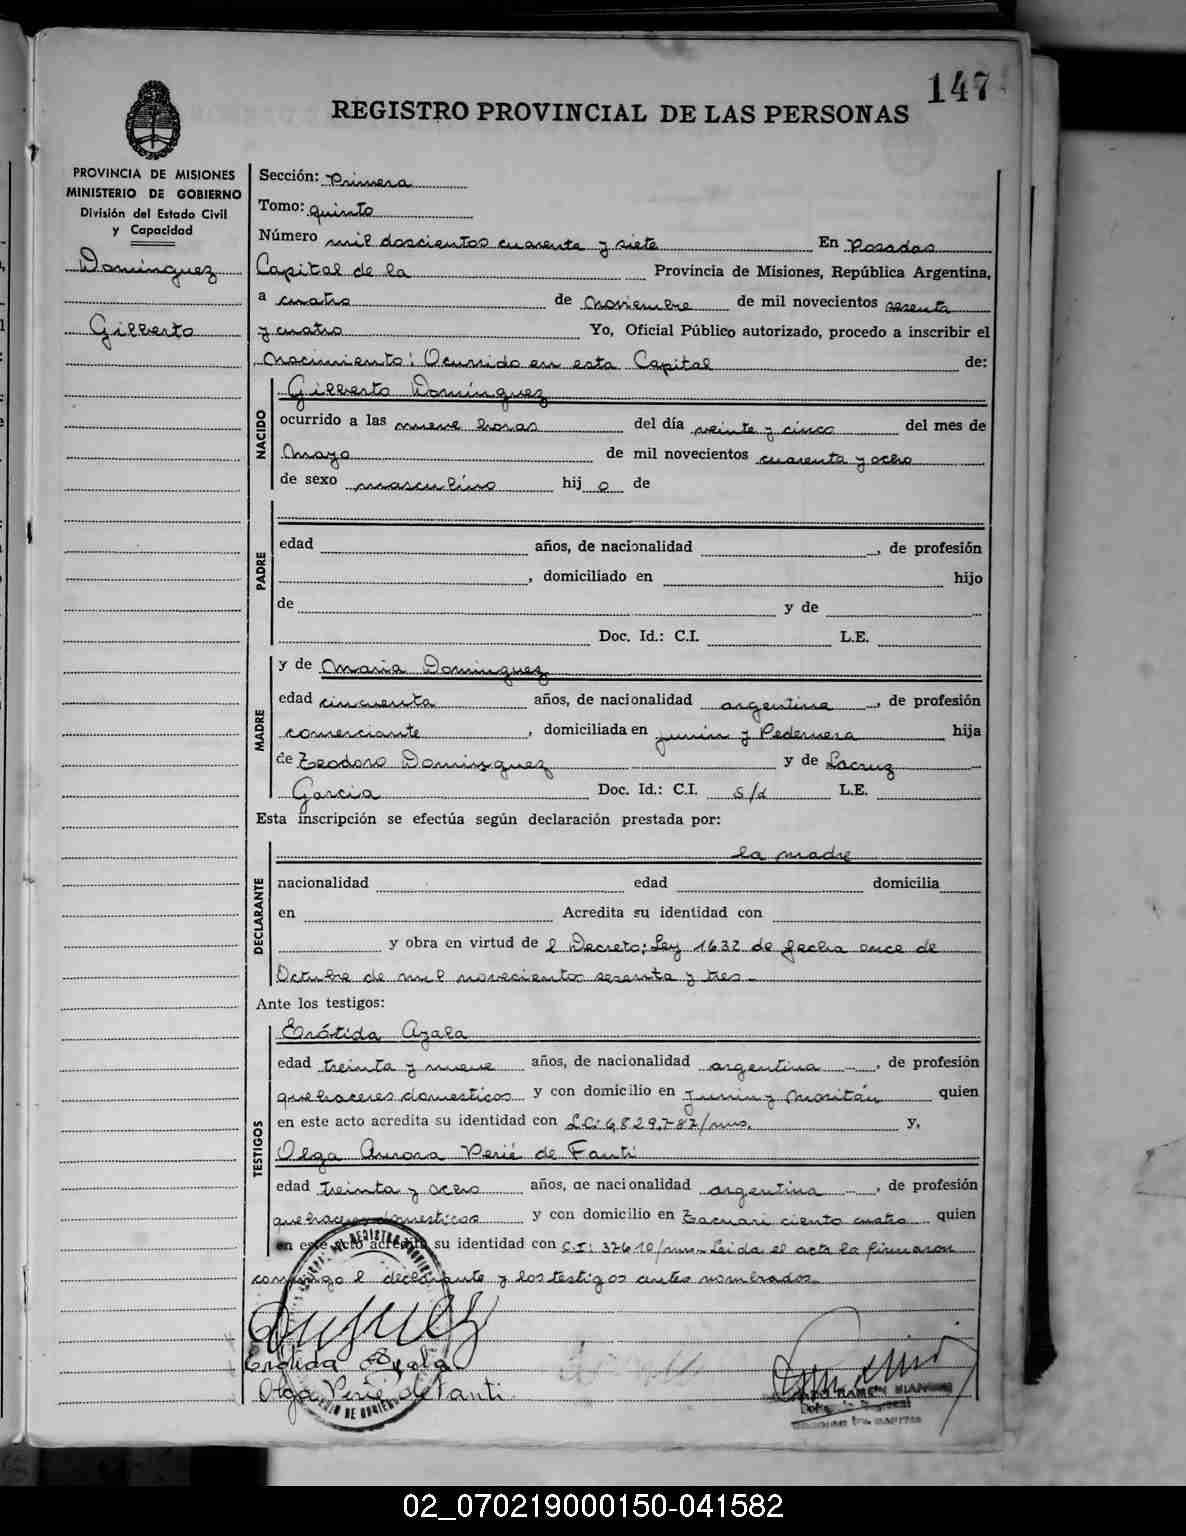 147
REGISTRO PROVINCIAL DE LAS PERSONAS
PROVINCIA DE MISIONES
MINISTERIO DE GOBIERNO
División del Estado Civil
y Capacidad
Dominguez
Gilberto
Sección: Primera
Tomo: quinto
Número mil doscientos cuarenta y siete En Posadas
Capital de la Provincia de Misiones, República Argentina,
a cuatro de noviembre de mil novecientos sesenta
y cuatro Yo, Oficial Público autorizado, procedo a inscribir el
nacimiento: Ocurrido en esta Capital de:
NACIDO
Gilberto Domínguez
ocurrido a las nueve horas del día veinte y cinco del mes de
Mayo de mil novecientos cuarenta y ocho
de sexo masculino hijo de
PADRE
edad años, de nacionalidad , de profesión
, domiciliado en hijo
de y de
Doc. Id.: C.I. L.E.
MADRE
y de Maria Dominguez
edad cincuenta años, de nacionalidad argentina, de profesión
comerciante, domiciliada en Junin y Pedernera hija
de Teodoro Dominguez y de Lacruz
Garcia Doc. Id.: C.I. s/d L.E.
Esta inscripción se efectúa según declaración prestada por:
DECLARANTE
la madre
nacionalidad edad domicilia
en Acredita su identidad con
y obra en virtud de l Decreto; Ley 1632 de fecha once de
Octubre de mil novecientos sesenta y tres.-
Ante los testigos:
TESTIGOS
Erótida Ayala
edad treinta y nueve años, de nacionalidad argentina, de profesión
quehaceres domesticos y con domicilio en Junin y quien
en este acto acredita su identidad con L.C: 6,829,787/mns. y,
Olga Aurora Perié de Fanti
edad treinta y ocho años, de nacionalidad argentina, de profesión
quehaceres domesticos y con domicilio en Tacuari ciento cuatro quien
en este acto acredita su identidad con C.I: 37610/mns.- Leida el acta la firmaron
conmigo l declarante y los testigos antes nombrados.-
Erótida Ayala
Olga Perié de Fanti
02_070219000150-041582